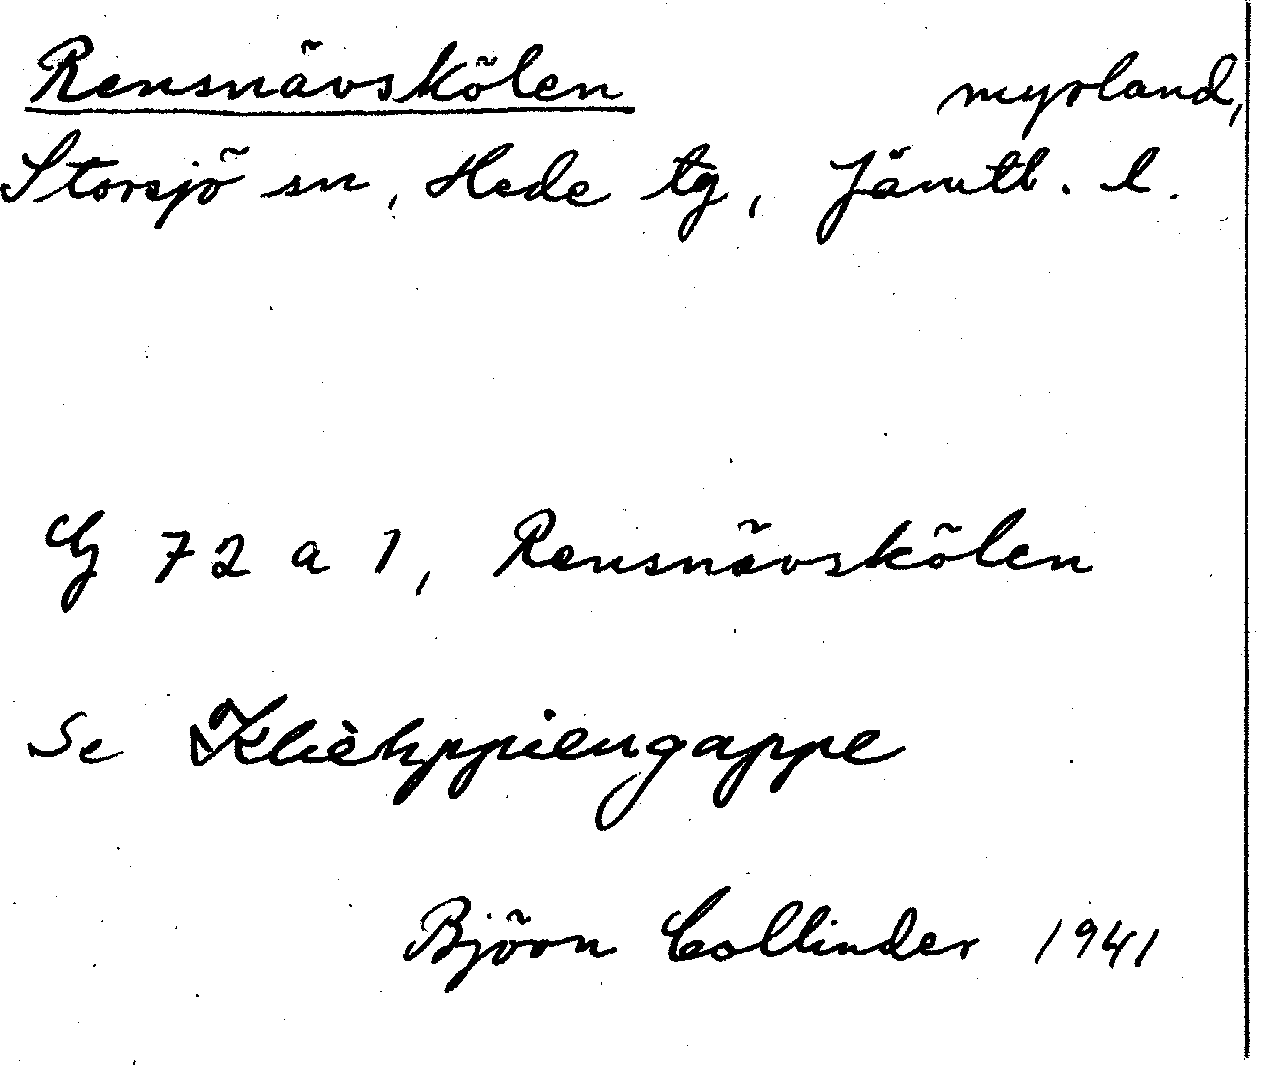 Rensnävskölen myrland,
Storsjö sn, Hede tg, Jämtl. l.
G 72 a 1, Rensnävskölen
Se Klièhppiengappe
Björn Collinder 1941